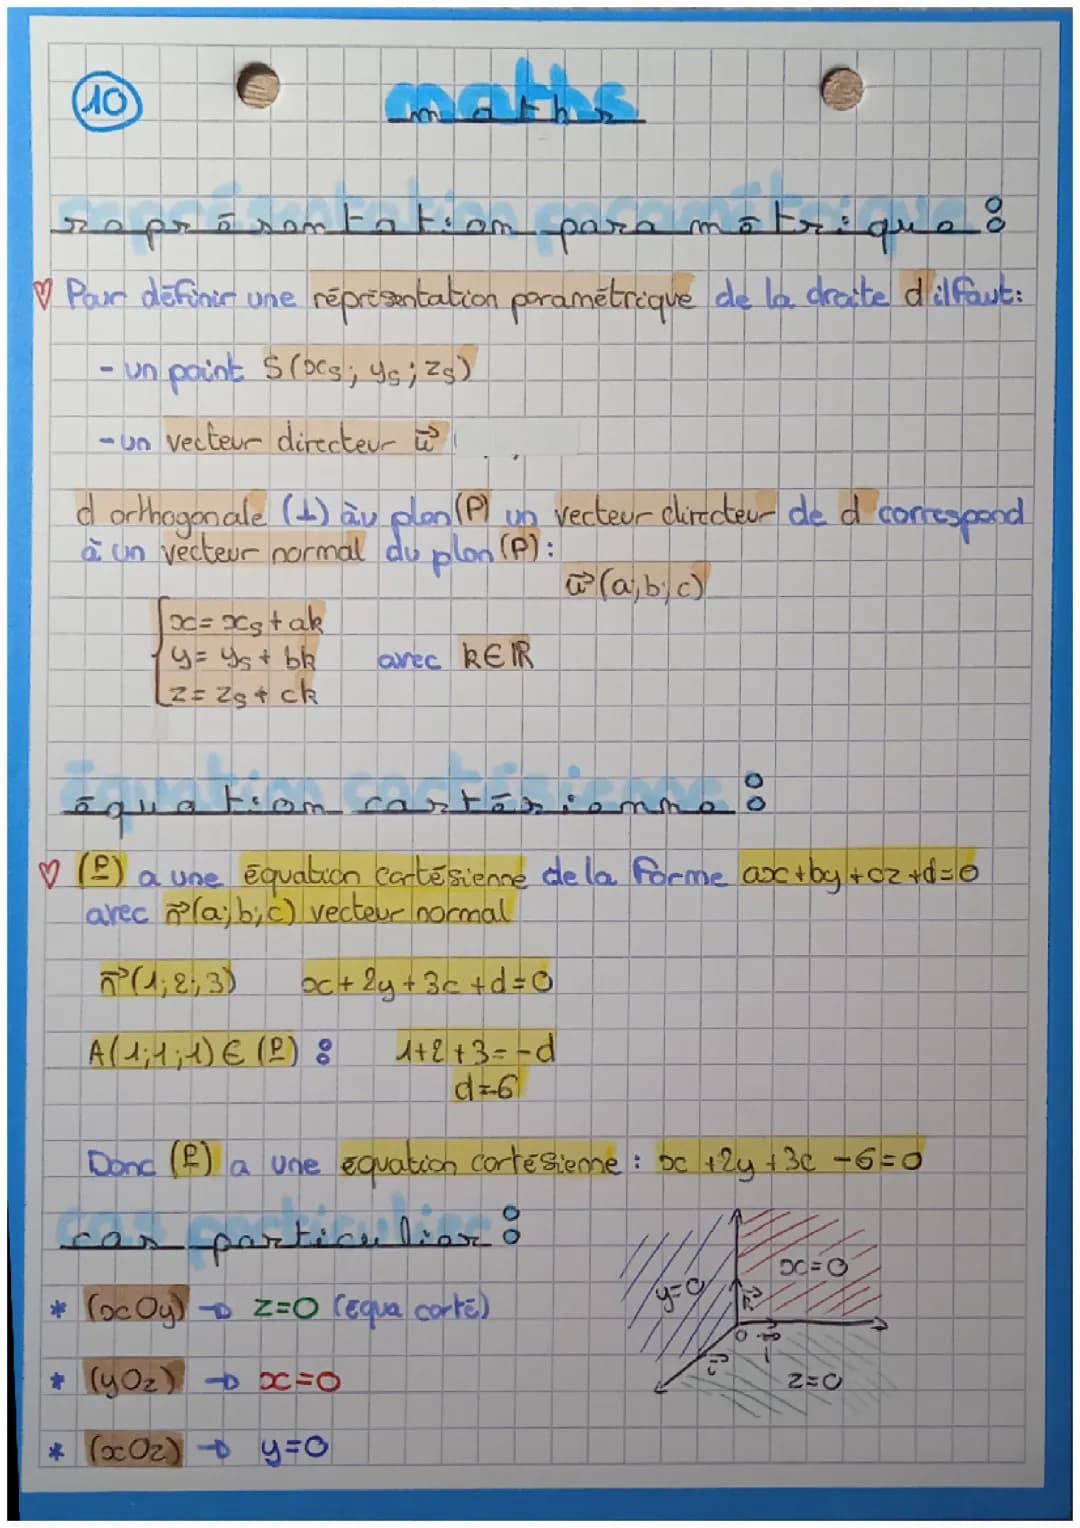 10
maths
représentation paramétrique :
♡ Pour définir une réprésentation paramétrique de la droite d il faut :
- un point S(xs; ys; zs)
- un vecteur directeur u⃗
d orthogonale (⊥) àu plan (P) un vecteur directeur de d correspond
à un vecteur normal du plan (P) :
u⃗(a;b;c)
x = xs + ak
y = ys + bk avec k∈ℝ
z = zs + ck
équation cartésienne :
♡ (P) a une équation cartésienne de la forme ax+by+cz+d=0
avec n⃗(a;b;c) vecteur normal
n⃗(1;2;3) x+2y+3c+d=0
A(1;1;1) ∈ (P) : 1+2+3=-d
d=-6
Donc (P) a une équation cartésienne : x+2y+3c-6=0
cas particulier :
* (xOy) → z=0 (équa carté)
* (yOz) → x=0
* (xOz) → y=0
y=0 x=0
k⃗
O j⃗
i⃗
z=0